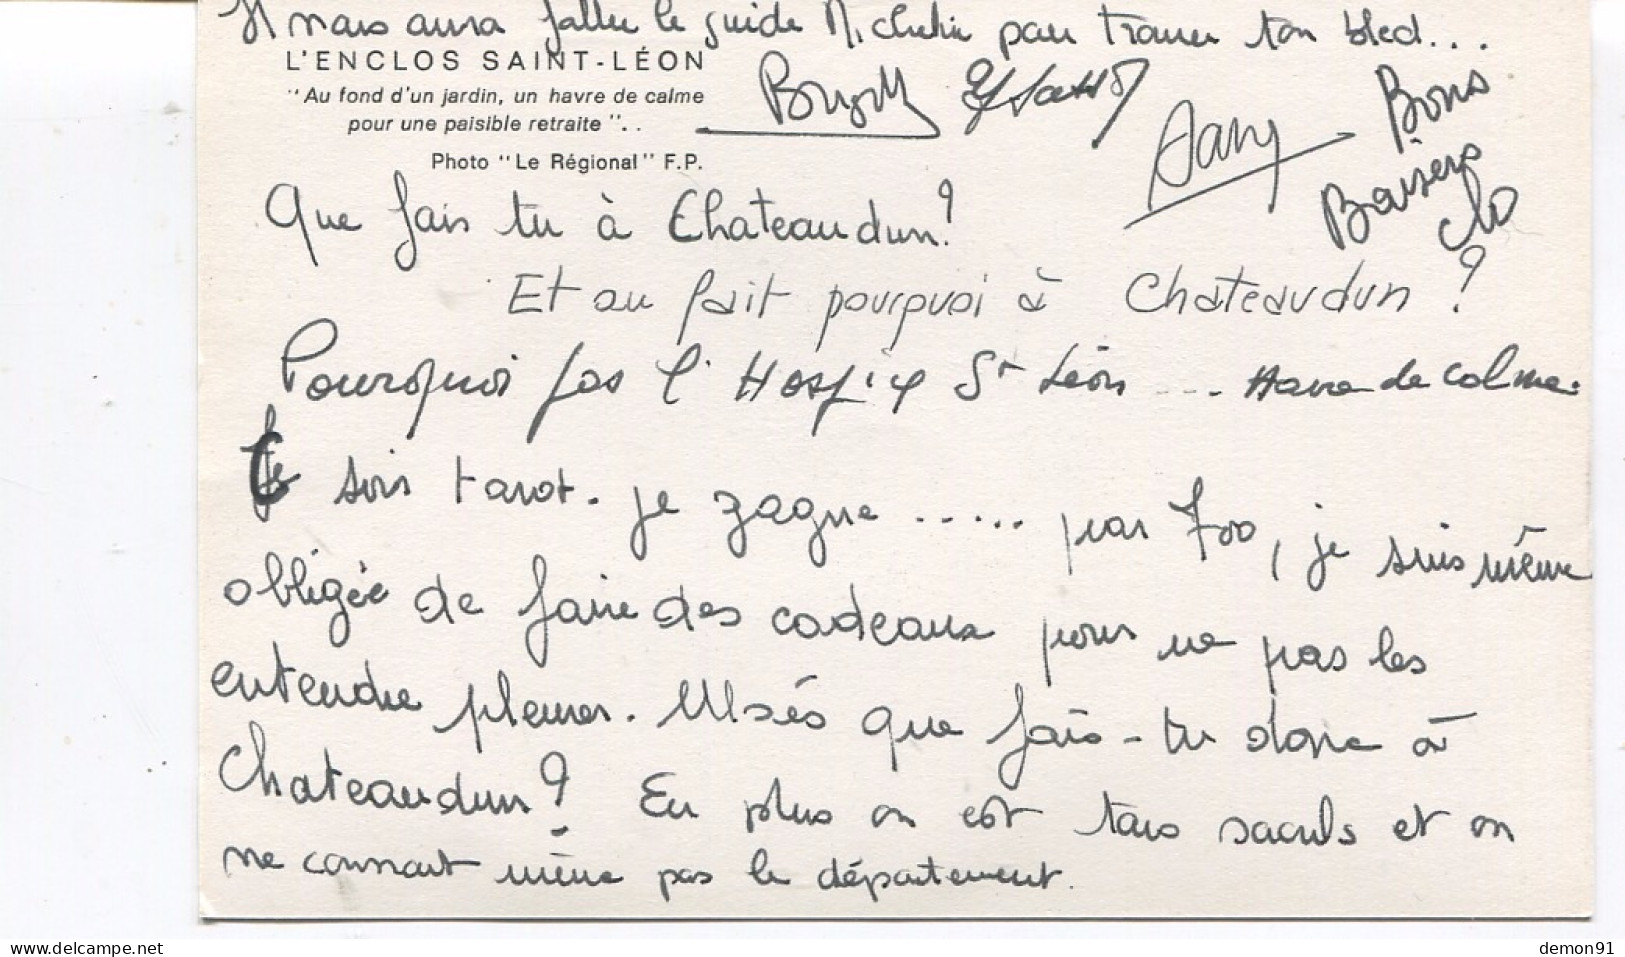 Il nous aura fallu le guide Michelin pour trouver ton bled...
L'ENCLOS SAINT-LÉON
"Au fond d'un jardin, un havre de calme
pour une paisible retraite"..
Photo "Le Régional" F.P.
Dany
Bons
Baisers
Clo
Que fais tu à Chateaudun?
Et au fait pourquoi à Chateaudun ?
Pourquoi pas l'Hospice St Léon ... Havre de calme.
Ce soir tarot. je gagne ..... par 700, je suis même
obligée de faire des cadeaux pour ne pas les
entendre pleurer. Mais que fais-tu donc à
Chateaudun? En plus on est tous saouls et on
ne connait même pas le département.
www.delcampe.net
demon91